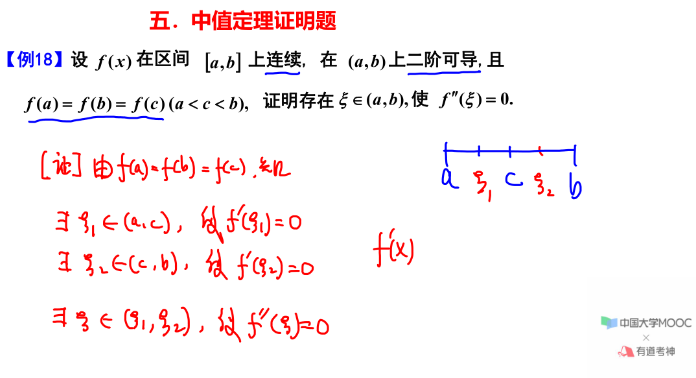 五．中值定理证明题
【例18】设 f(x) 在区间 [a,b] 上连续, 在 (a,b)上二阶可导,且
f(a)=f(b)=f(c)(a<c<b), 证明存在 ξ∈(a,b),使 f″(ξ)=0.
[证] 由 f(a)=f(b)=f(c). 知
∃ ξ₁∈(a,c), 使 f′(ξ₁)=0
∃ ξ₂∈(c,b), 使 f′(ξ₂)=0
∃ ξ∈(ξ₁,ξ₂), 使 f″(ξ)=0
a ξ₁ c ξ₂ b
f′(x)
中国大学MOOC
×
有道考神